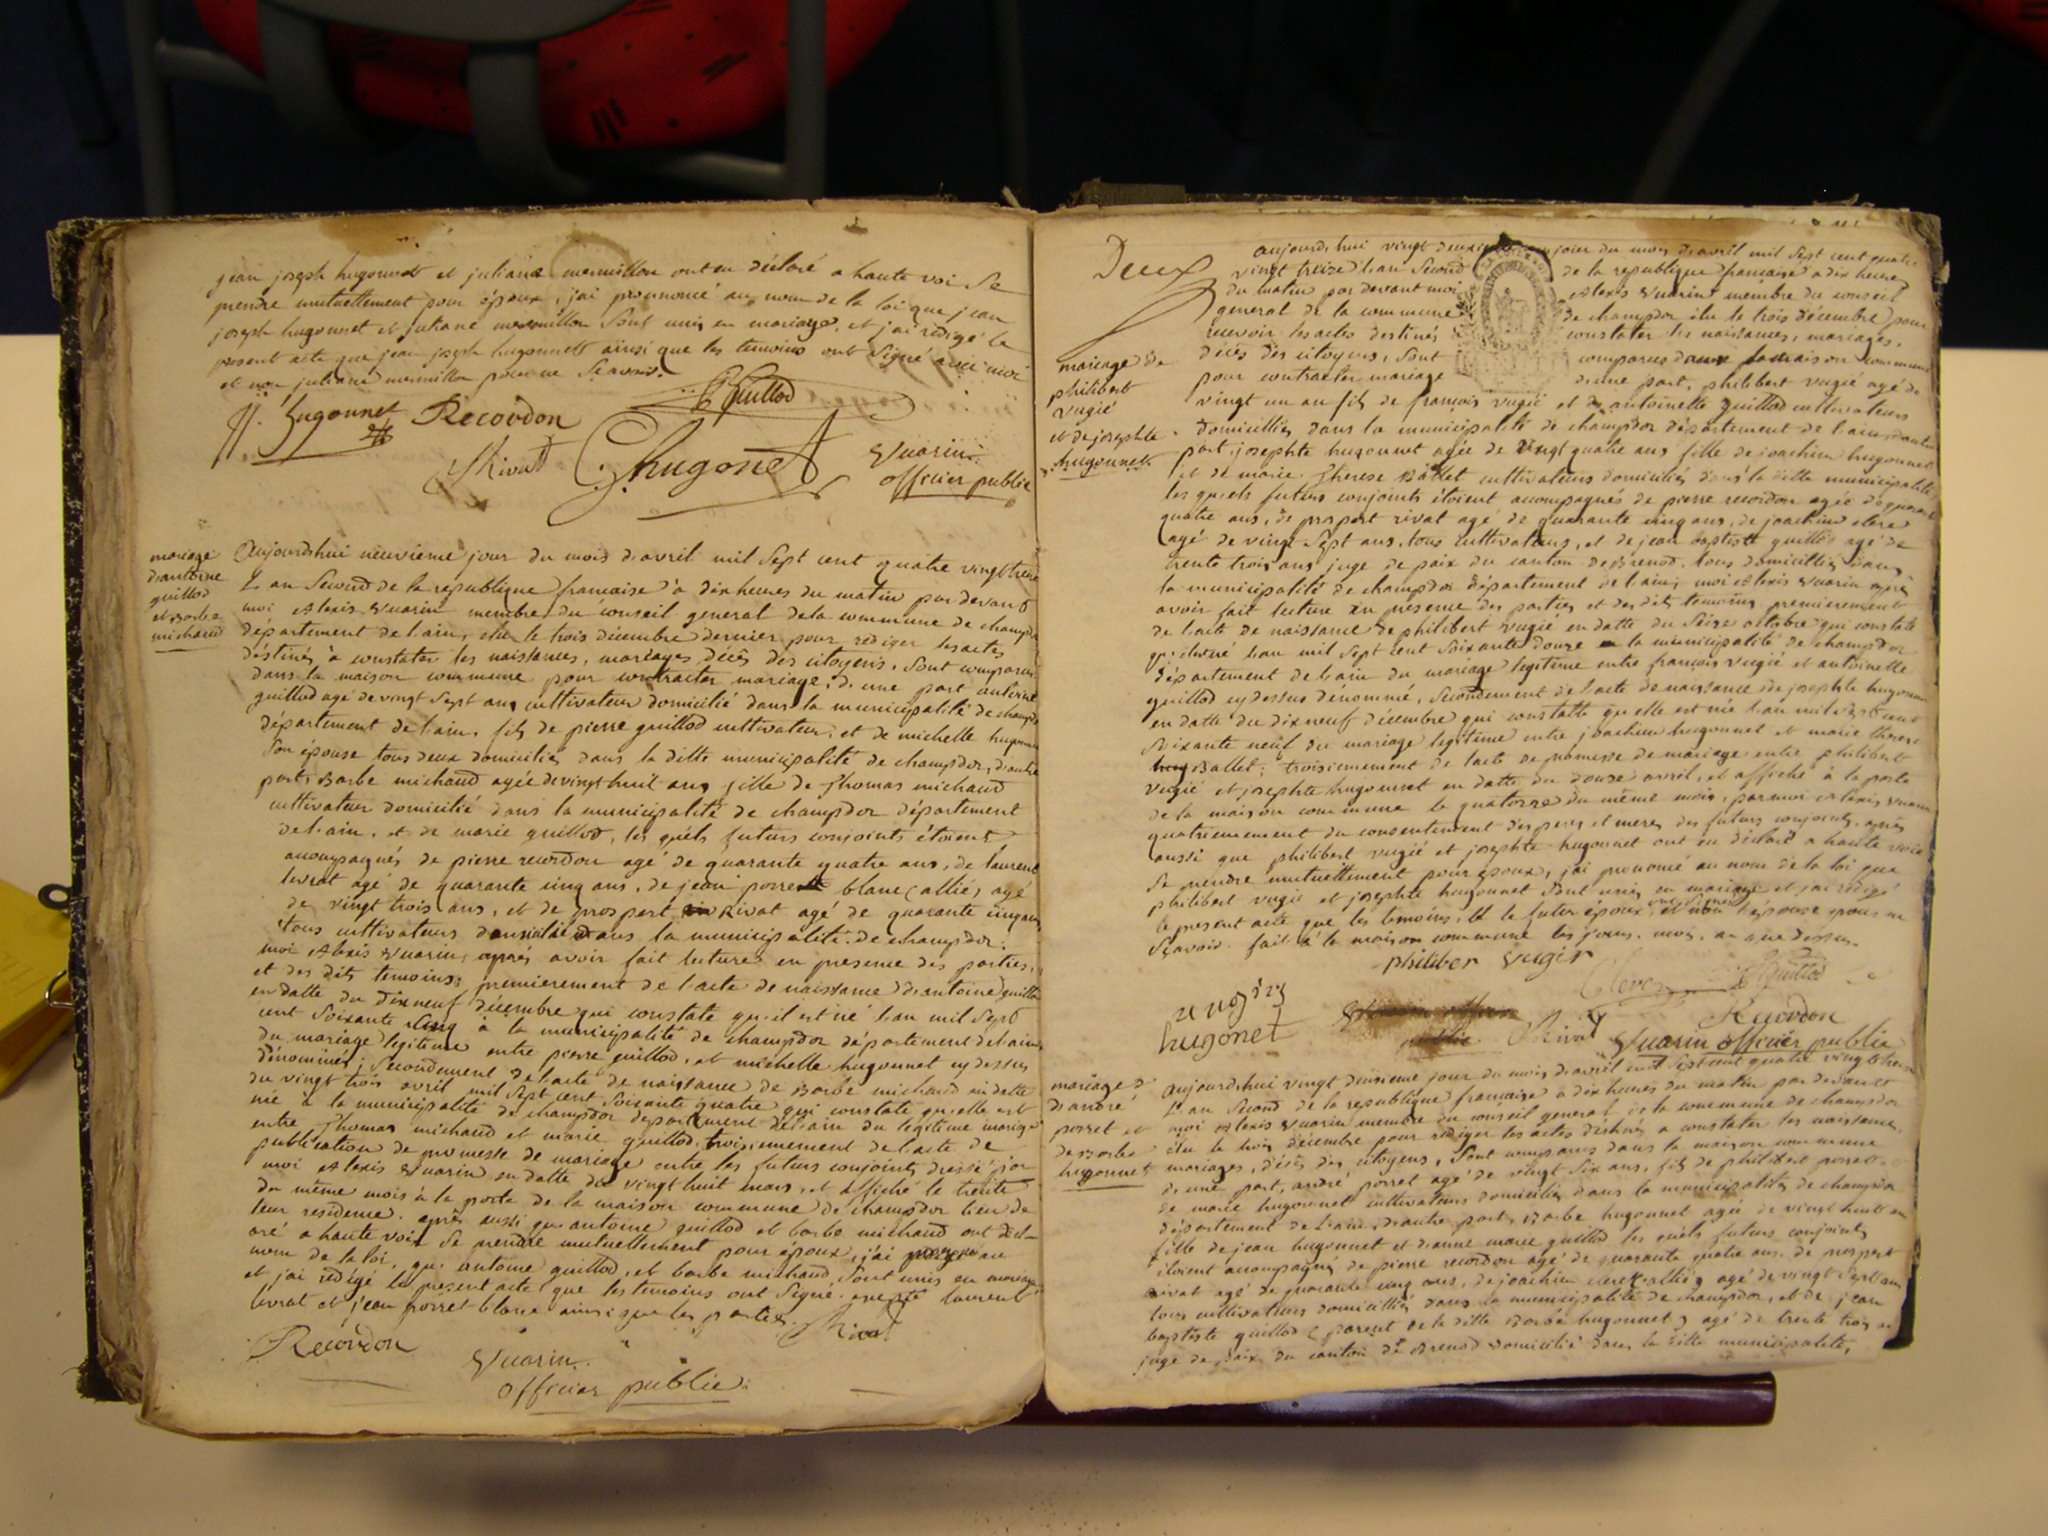 jean joseph hugonnet et juliane mermillon ont en déclaré a haute voi se
prendre mutuellement pour époux, j'ai prononcé au nom de la loi que jean
joseph hugonnet et juliane mermillon sont unis en mariage, et j'ai rédigé le
present acte que jean joseph hugonnet ainsi que les temoins ont signé avec moi
et non juliane mermillon pour ne scavoir.
JJ. hugonnet Recordon Guillod
Rivat hugonet Vuarin
officier public
mariage
d'antoine
guillod
et barbe
michaud
aujourdhui neuvieme jour du mois d'avril mil sept cent quatre vingt treize
L'an second de la republique francaise à dix heures du matin par devant
moi Alexis Vuarin membre du conseil general de la commune de champdor
département de l'ain, élu le trois décembre dernier pour rédiger les actes
déstinés à constater les naissances, mariages décés des citoyens, sont comparus
dans la maison commune pour contracter mariage, d'une part antoine
guillod agé de vingt sept ans cultivateur domicilié dans la municipalité de champdor
département de l'ain, fils de pierre guillod cultivateur, et de michelle hugonnet
son épouse tous deux domiciliés dans la ditte municipalité de champdor, d'autre
part, Barbe michaud agée de vingt huit ans fille de thomas michaud
cultivateur domicilié dans la municipalité de champdor département
de l'ain, et de marie guillod, les quels futurs conjoints étoient
accompagnés de pierre recordon agé de quarante quatre ans, de laurent
livrat agé de quarante cinq ans, de jean porret blanc (allié) agé
de vingt trois ans, et de prospert rivat agé de quarante cinq ans
tous cultivateurs domiciliés dans la municipalité de champdor.
moi Alexis Vuarin, après avoir fait lecture en presence des parties,
et des dits temoins; premierement de l'acte de naissance d'antoine guillod
en datte du dix neuf décembre qui constate qu'il est né l'an mil sept
cent soixante cinq à la municipalité de champdor département de l'ain
du mariage légitime entre pierre guillod, et michelle hugonnet cy dessus
dénominés; secondement de l'acte de naissance de Barbe michaud en datte
du vingt trois avril mil sept cent soixante quatre qui constate qu'elle est
née à la municipalité de champdor département de l'ain du legitime mariage
entre thomas michaud et marie guillod, troisiemement de l'acte de
publication de promesse de mariage entre les futurs conjoints dressé par
moi Alexis Vuarin en datte du vingt huit mars, et affiché le trente
du même mois à la porte de la maison commune de champdor lieu de
leur residence. après aussi que antoine guillod et barbe michaud ont décla-
ré a haute voix se prendre mutuellement pour époux, j'ai au
nom de la loi, que antoine guillod, et barbe michaud, sont unis en mariage
et j'ai rédigé le present acte que les temoins ont signé excepté laurent
livrat et jean porret blanc ainsi que les parties.
Rivat
Recordon Vuarin
officier public
Deux
mariage de
philibert
vugié
et de josephte
hugonnet
aujourdhui vingt deuxieme jour du mois d'avril mil sept cent quatre
vingt treize l'an second de la republique francaise a dix heures
du matin par devant moi Alexis Vuarin membre du conseil
general de la commune de champdor élu le trois décembre pour
recevoir les actes destinés constater les naissances, mariages,
décés des citoyens, sont comparus dans la maison commune
pour contracter mariage d'une part, philibert vugié agé de
vingt un an fils de françois vugié et de antoinette guillod cultivateurs
domiciliés dans la municipalité de champdor département de l'ain, d'autre
part, josephte hugonnet agée de vingt quatre ans fille de joachim hugonnet
et de marie therese Ballet cultivateurs domiciliés dans la ditte municipalité
les quels futurs conjoints étoient accompagnés de pierre recordon agée de quarante
quatre ans, de prospert rivat agé de quarante cinq ans, de joachim clere
agé de vingt sept ans, tous cultivateurs, et de jean baptiste guillod agé de
trente trois ans juge de paix du canton de Brenod. tous domiciliés dans
la municipalité de champdor département de l'ain, moi Alexis Vuarin après
avoir fait lecture en presence des parties et des dits temoins premierement
de l'acte de naissance de philibert vugié en datte du seize octobre qui constate
l'an mil sept cent soixante douze la municipalité de champdor
département de l'ain du mariage legitime entre françois vugié et antoinette
guillod cy dessus dénommé, secondement de l'acte de naissance de josephte hugonnet
en datte du dix neuf décembre qui constatte qu'elle est née l'an mil sept cent
soixante neuf du mariage legitime entre joachim hugonnet et marie therese
Ballet; troisiemement de l'acte de promesse de mariage entre philibert
vugié et josephte hugonnet en datte du douze avril, et affiché à la porte
de la maison commune le quatorze du même mois, par moi Alexis Vuarin
quatriemement du consentement des peres et meres des futurs conjoints. après
aussi que philibert vugié et josephte hugonnet ont en déclaré a haute voix
se prendre mutuellement pour époux, j'ai prononcé au nom de la loi que
philibert vugié et josephte hugonnet sont unis en mariage et j'ai rédigé
le present acte que les temoins, et le futur époux ont signé et non l'épouse pour ne
scavoir. fait à la maison commune les jours, mois, an que dessus.
philiber vugir
Clere Guillod
vugiez Recordon
hugonet Rivat Vuarin officier public
mariage de
d'andré
porret et
de Barbe
hugonnet
aujourdhui vingt deuxieme jour du mois d'avril mil sept cent quatre vingt treize
l'an second de la republique française a dix heures du matin par devant
moi Alexis Vuarin membre du conseil general de la commune de champdor
élu le trois décembre pour rédiger les actes déstinés a constater les naissances,
mariages, décés des citoyens, sont comparus dans la maison commune
d'une part, andré porret agé de vingt six ans, fils de philibert porret
de marie hugonnet cultivateurs domiciliés dans la municipalité de champdor
département de l'ain, d'autre part, Barbe hugonnet agée de vingt huit ans
fille de jean hugonnet et d'anne marie guillod les quels futurs conjoints
étoient accompagnés de pierre recordon agé de quarante quatre ans, de prospert
rivat agé de quarante cinq ans, de joachim clere (allié) agé de vingt sept ans
tous cultivateurs domiciliés dans la municipalité de champdor, et de jean
baptiste guillod (parent de la ditte Barbe hugonnet) agé de trente trois ans
juge de paix du canton de Brenod domicilié dans la ditte municipalité,